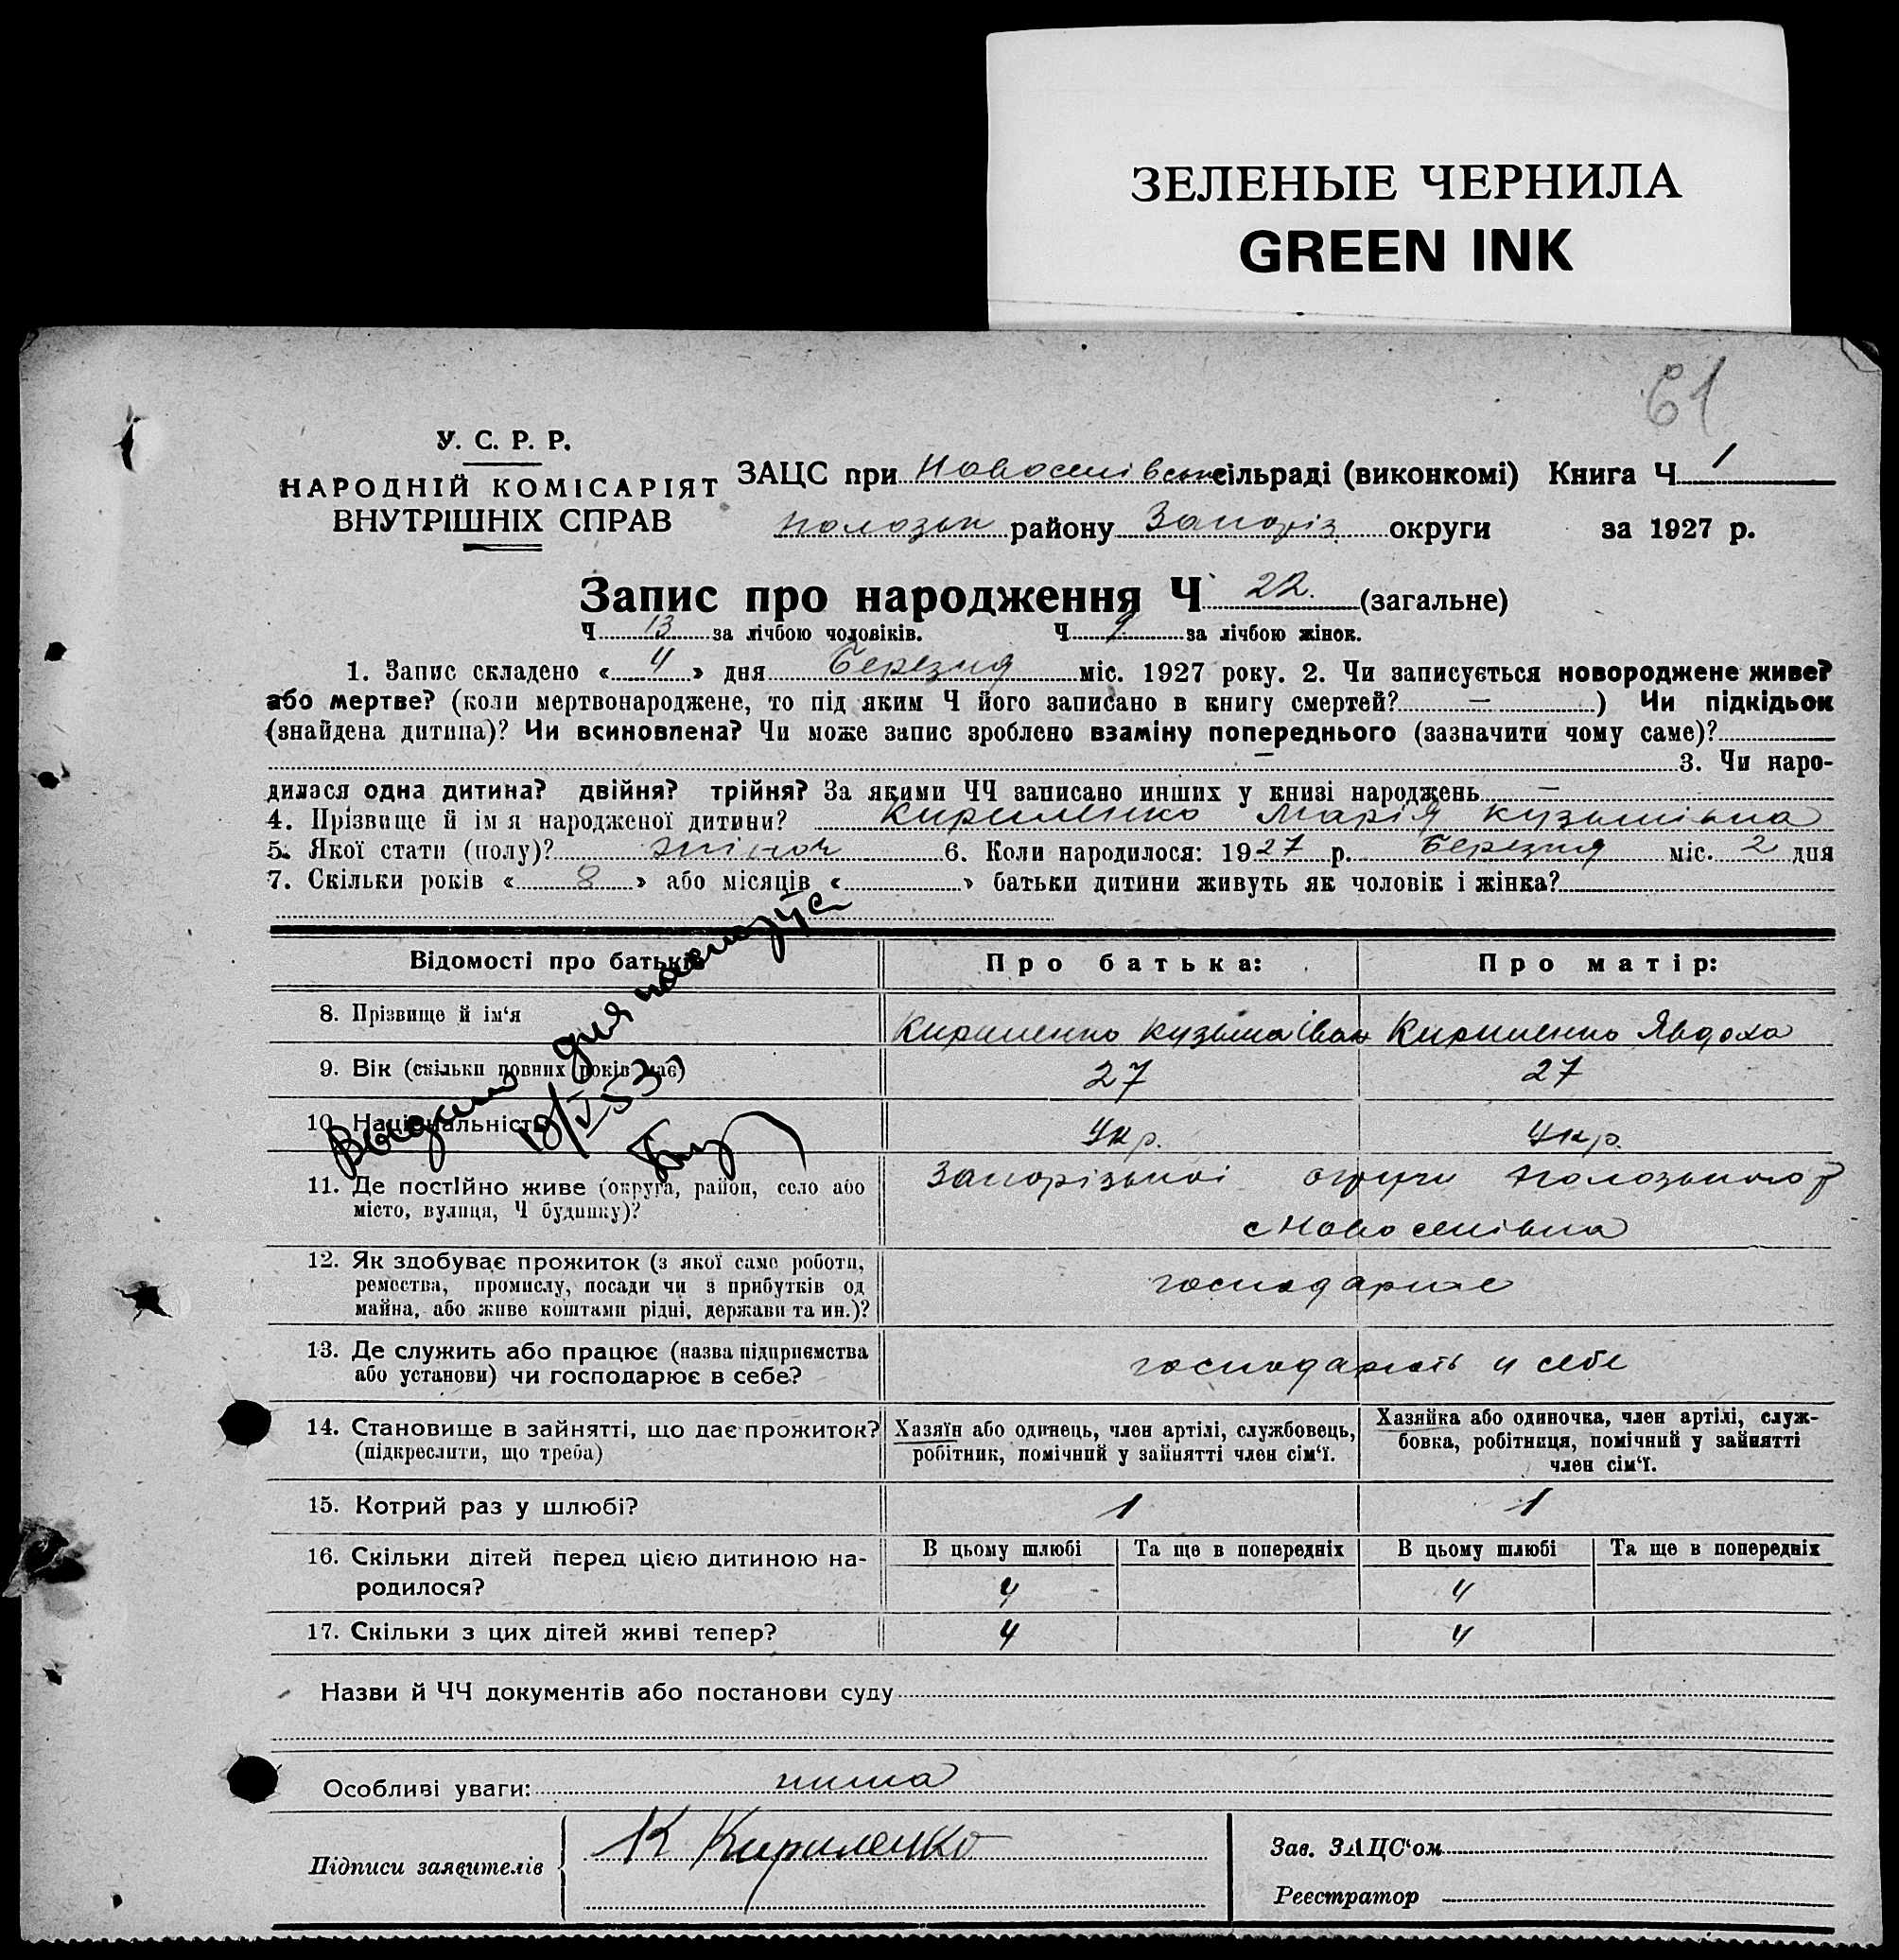 ЗЕЛЕНЫЕ ЧЕРНИЛА
GREEN INK
61
У. С. Р. Р.
НАРОДНІЙ КОМІСАРІЯТ
ВНУТРІШНІХ СПРАВ
ЗАЦС при Новоселівськ сільраді (виконкомі) Книга Ч 1
Полозьк району Запоріз округи за 1927 р.
Запис про народження Ч 22. (загальне)
Ч 13 за лічбою чоловіків. Ч 9 за лічбою жінок.
1. Запис складено « 4 » дня Березня міс. 1927 року. 2. Чи записується новороджене живе?
або мертве? (коли мертвонароджене, то під яким Ч його записано в книгу смертей? — ) Чи підкідьок
(знайдена дитина)? Чи всиновлена? Чи може запис зроблено взаміну попереднього (зазначити чому саме)?
— 3. Чи наро-
дилася одна дитина? двійня? трійня? За якими ЧЧ записано инших у книзі народжень —
4. Прізвище й ім я народженої дитини? Кириленко Марія Кузьмівна
5. Якої стати (полу)? жіноч 6. Коли народилося: 1927 р. Березня міс. 2 дня
7. Скільки років « 8 » або місяців « » батьки дитини живуть як чоловік і жінка?
Відомості про батьків Про батька: Про матір:
8. Прізвище й ім‘я Кириленко Кузьма Іван Кириленко Явдоха
9. Вік (скільки повних років має) 27 27
10. Національність Укр. Укр.
11. Де постІйно живе (округа, район, село або
місто, вулиця, Ч будинку)?
Запорізької округи Полозького р
с Новоселівка
12. Як здобуває прожиток (з якої саме роботи,
ремества, промислу, посади чи з прибутків од
майна, або живе коштами рідні, держави та ин.)?
господарює
13. Де служить або працює (назва підприємства
або установи) чи господарює в себе?
господарють у себе
14. Становище в зайнятті, що дає прожиток?
(підкреслити, що треба)
Хазяїн або одинець, член артілі, службовець,
робітник, помічний у зайнятті член сім‘ї.
Хазяйка або одиночка, член артілі, служ-
бовка, робітниця, помічний у зайнятті
член сім‘ї.
15. Котрий раз у шлюбі? 1 1
16. Скільки дітей перед цією дитиною на-
родилося?
В цьому шлюбі Та ще в попередніх В цьому шлюбі Та ще в попередніх
4 - 4
17. Скільки з цих дітей живі тепер? 4 4
Выдано для
18/V 53
Назви й ЧЧ документів або постанови суду
Особливі уваги: нима
Підписи заявителів К Кириленко
Зав. ЗАЦС‘ом
Реєстратор